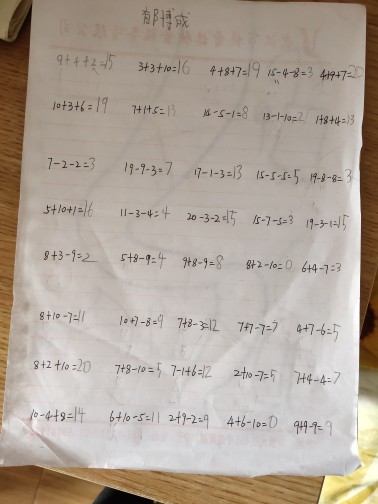 郝博成
9+4+2=15 3+3+10=16 4+8+7=19 15-4-8=3 4+9+7=20
10+3+6=19 7+1+5=13 14-5-1=8 13-1-10=2 1+8+4=13
7-2-2=3 19-9-3=7 17-1-3=13 15-5-5=5 19-8-8=3
5+10+1=16 11-3-4=4 20-3-2=15 15-7-5=3 19-3-1=15
8+3-9=2 5+8-9=4 9+8-9=8 8+2-10=0 6+4-7=3
8+10-7=11 10+7-8=9 7+8-3=12 7+7-7=7 4+7-6=5
8+2+10=20 7+8-10=5 7-1+6=12 2+10-7=5 7+4-4=7
10-4+8=14 6+10-5=11 2+9-2=9 4+6-10=0 9+9-9=9